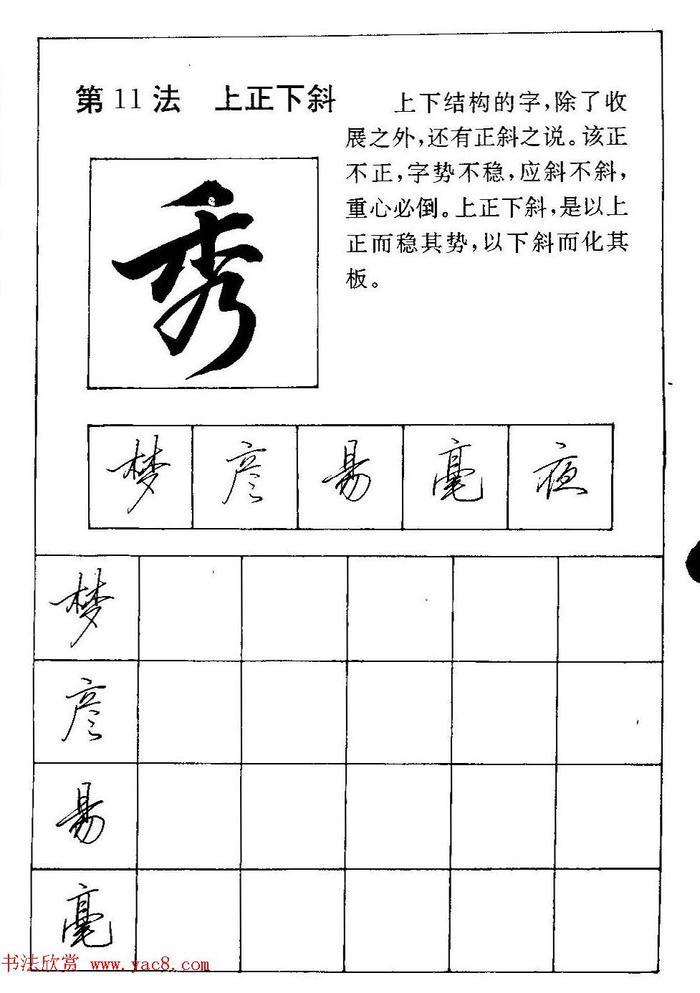 第11法 上正下斜
上下结构的字,除了收
展之外,还有正斜之说。该正
不正,字势不稳,应斜不斜,
重心必倒。上正下斜,是以上
正而稳其势,以下斜而化其
板。
秀
梦 彦 易 毫 夜
梦
彦
易
毫
书法欣赏 www.yac8.com